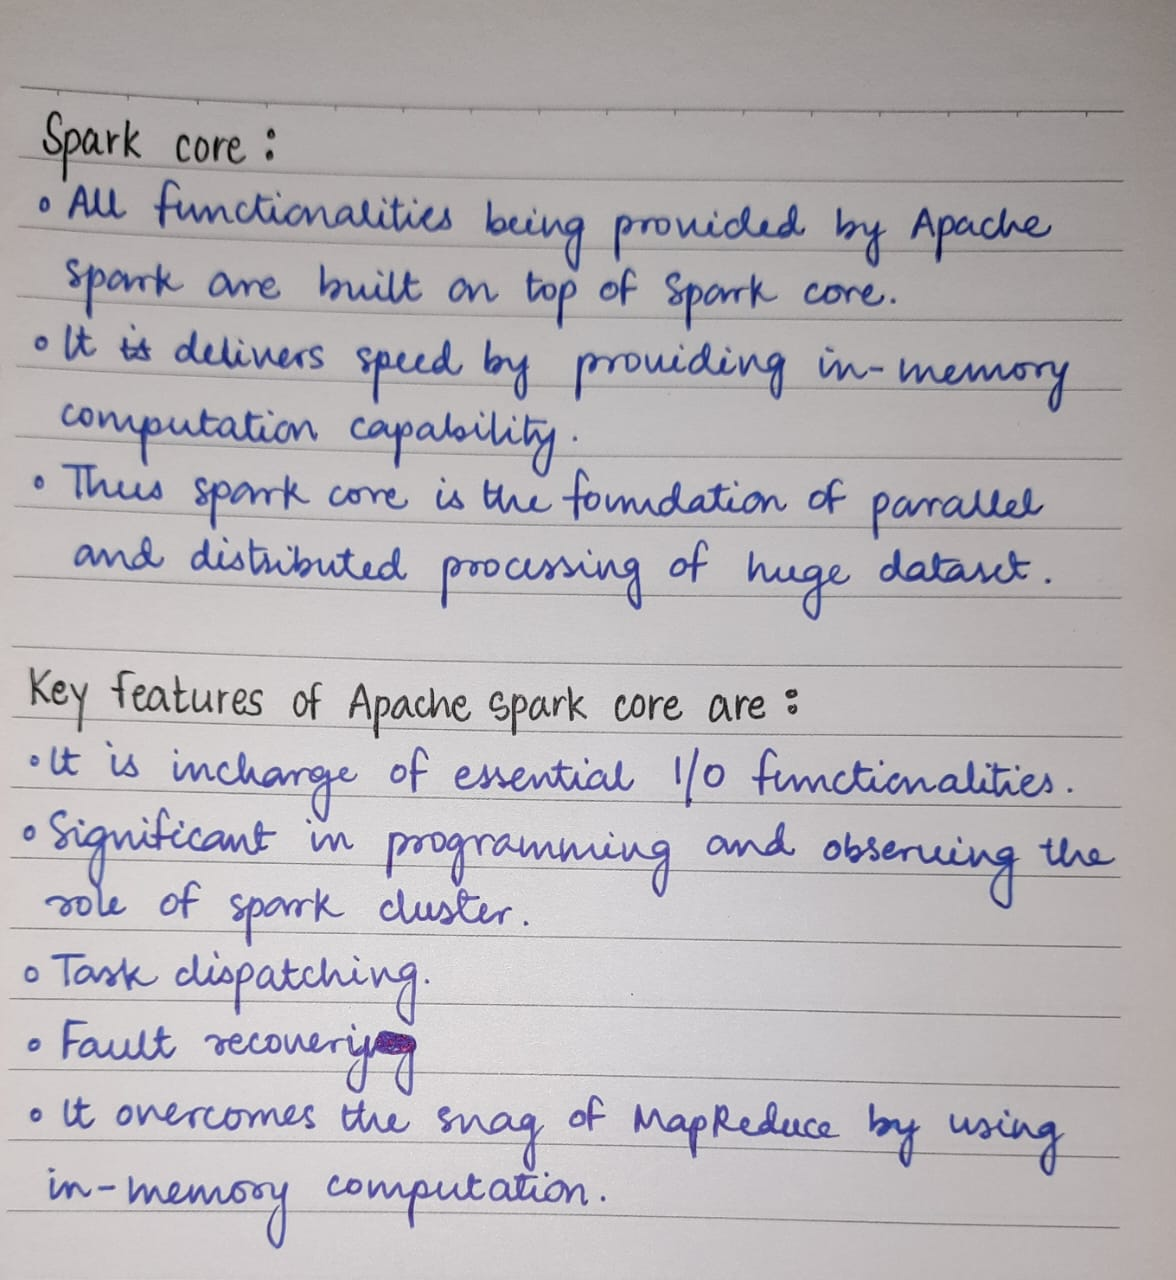 Spark core :
• All functionalities being provided by Apache
spark are built on top of Spark core.
• It is delivers speed by providing in-memory
computation capability.
• Thus spark core is the foundation of parallel
and distributed processing of huge dataset.
Key features of Apache spark core are :
• It is incharge of essential I/O functionalities.
• Significant in programming and observing the
role of spark cluster.
• Task dispatching.
• Fault recovery
• It overcomes the snag of MapReduce by using
in-memory computation.